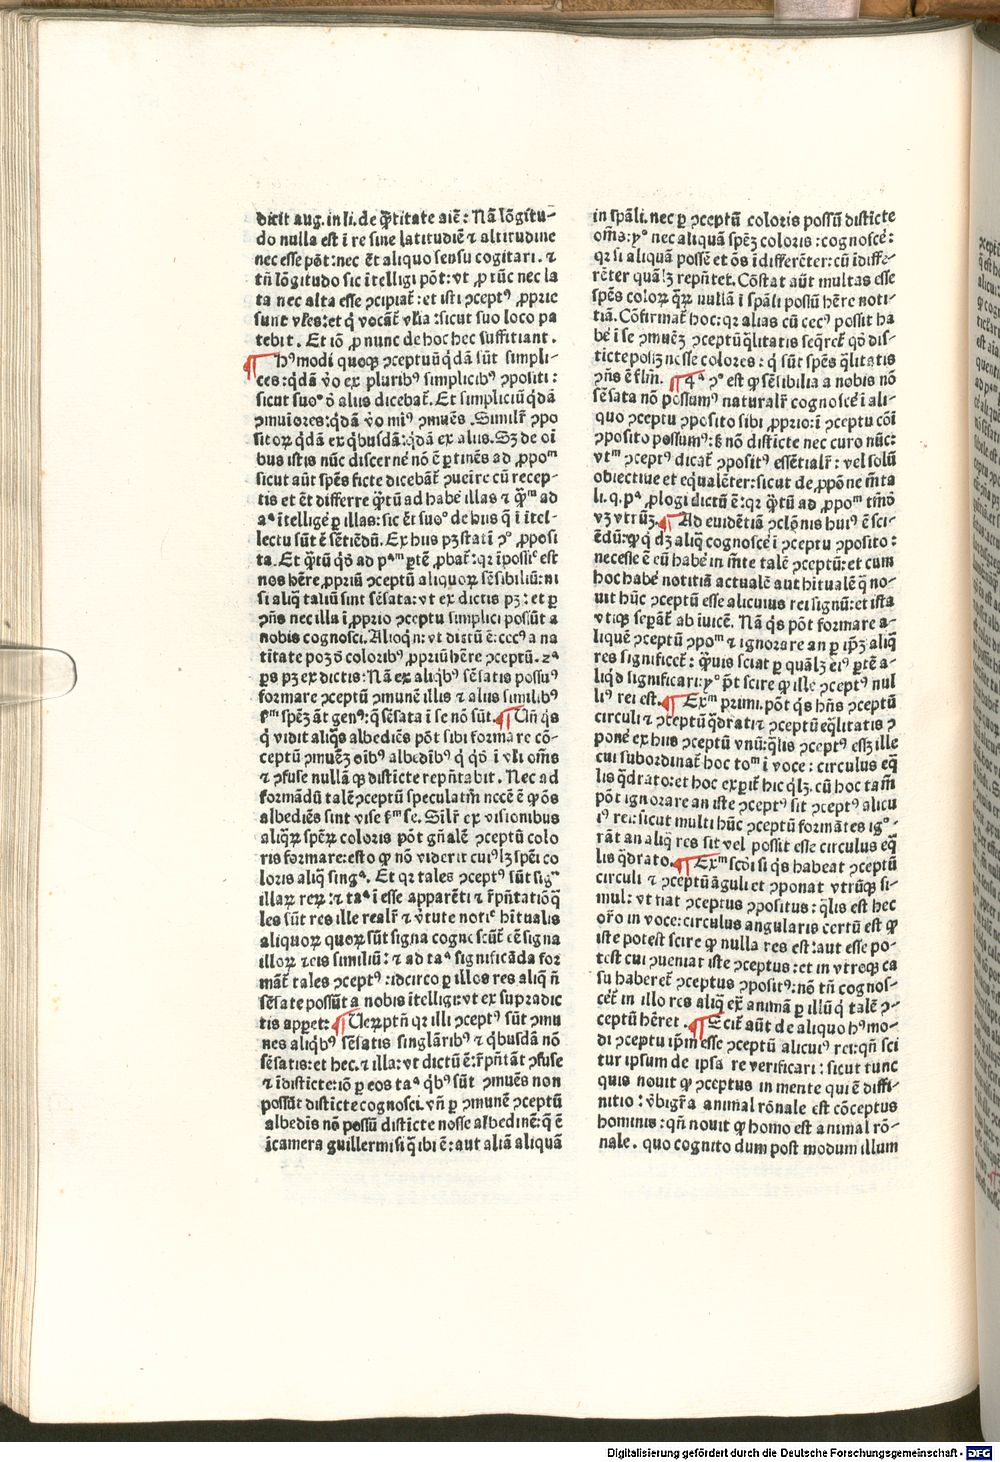 dicit aug. in li. de q̃titate aĩe: Nã lõgitu-
do nulla est ĩ re sine latitudiẽ ⁊ altitudine
nec esse põt: nec ẽt aliquo sensu cogitari. ⁊
tñ lõgitudo sic ĩtelligi põt: vt ꝓ tũc nec la
ta nec alta esse ꝯcipiat᷑: et isti ꝯceptꝰ ꝓprie
sunt vl̃es: et q̇ vocãt᷑ vl̃ia: sicut suo loco pa
tebit. Et iõ ꝓ nunc de hoc hec suffitiant.
¶ Hꝰmodi quoqꝫ ꝯceptuũ q̇dã sũt simpli-
ces: q̇dã v̾o ex pluribꝰ simplicibꝰ ꝯpositi:
sicut suo° õ aliis dicebat᷑. Et simpliciũ q̇dã
ꝯmuiores: q̇dã v̾o miꝰ ꝯmuẽs. Similr̃ ꝯpo
sitoꝝ q̇dã ex q̇busdã: q̇dã ex aliis. Sꝫ de oĩ
bus istis nũc discerne᷑ nõ ẽ ꝑtinẽs ad ꝓpoᵐ
sicut aũt spẽs ficte dicebãt᷑ ꝯueĩre cũ recep-
tis et ẽt differre q̃tũ ad habe᷑ illas ⁊ q̃ᵐ ad
aᵃ ĩtellige᷑ ꝑ illas: sic ẽt suo° de hiis q̃ ĩ ĩtel-
lectu sũt ẽ sẽtiẽdũ. Ex hiis pꝫ statĩ ꝯ° ꝓposi
ta. Et q̃tũ q̇õ ad pᵃᵐ ꝑtẽ ꝓbat᷑: qꝛ ĩpossiᵉ est
nos hẽre ꝓpriũ ꝯceptũ aliquoꝝ sẽsibiliũ: ni
si aliq̃ taliũ sint sẽsata: vt ex dictis pꝫ: et ꝑ
ꝯñs nec illa ĩ ꝓprio ꝯceptu simplici possũt a
nobis cognosci. Alioq̇n: vt dictũ ẽ: cecꝰ a na
tĩtate
ꝑs pꝫ ex dictis: Nã ex aliq̇bꝰ sẽsatis possuꝰ
formare ꝯceptũ ꝯmunẽ illis ⁊ aliis similibꝰ
sᵐ spẽꝫ ãt genꝰ: q̃ sẽsata ĩ se nõ sũt. ¶ Uñ q̇s
q̇ vidit aliq̃s albediẽs põt sibi formare cõ-
ceptũ ꝯmuẽꝫ oĩbꝰ albedĩbꝰ q̇ q̇õ ĩ vl̃i om̃s
⁊ ꝯfuse nullã qꝫ disticte repñtabit. Nec ad
formãdũ talẽ ꝯceptũ speculatiñ nccẽ ẽ ꝙ oẽs
albediẽs sint vise sᵐ se. Sil̃r ex visionibus
aliq̃ꝝ spẽꝝ coloris põt gñalẽ ꝯceptũ colo
ris formare: esto ꝙ nõ viderit cuiꝰlꝫ spẽi co
loris aliq̃ singᵃ. Et qꝛ tales ꝯceptꝰ sũt sigᵃ
illaꝝ reꝝ: ⁊ taᵃ ĩ esse apparẽti ⁊ r̃pñtatiõq̃
les sũt res ille real̃r ⁊ v̾tute notiᵉ hĩtualis
aliquoꝝ quoꝝ sũt signa cognoscũt᷑ eẽ signa
illoꝝ ⁊ eis similiũ: ⁊ ad taᵃ significãda for
mãt᷑ tales ꝯceptꝰ: idcirco ꝑ illos res aliq̃ ñ
sẽsate possũt a nobis ĩtelligi: vt ex supradic
tis appet᷑: ¶ Ueꝝptñ qꝛ illi ꝯceptꝰ sũt ꝯmu
nes aliq̇bꝰ sẽsatis singlãribꝰ ⁊ q̇busdã nõ
sẽsatis: et hec. ⁊ illa: vt dictũ ẽ: r̃pñtãt ꝯfuse
⁊ ĩdisticte: iõ ꝑ eos taᵃ q̇bꝰ sũt ꝯmuẽs non
possũt disticte cognosci. vñ ꝑ ꝯmunẽ ꝯceptũ
albedĩs nõ possũ disticte nosse albedinẽ: q̃ ẽ
ĩ camera guillermi si q̃ ibi ẽ: aut aliã aliquã
in spãli. nec ꝑ ꝯceptũ coloris possũ disticte
om̃s: y° nec aliquã spẽꝫ coloris: cognosce᷑:
qꝛ si aliquã possẽ et õs ĩdifferẽter: cũ ĩdiffe-
rẽter quãlꝫ repñtet. Cõstat aũt multas esse
spẽs coloꝝ q̃ꝝ nullã ĩ spãli possũ hẽre noti-
tiã. Cõfirmat᷑ hoc: qꝛ alias cũ cecꝰ possit ha
be᷑ ĩ se ꝯmuẽꝫ ꝯceptũ q̃litatis seq̃ret᷑ qõ dis-
ticte posꝫ nosse colores: q̇ sũt spẽs q̃litatis
ꝯñs ẽ fl̃m. ¶ 4ᵃ ꝯ° est ꝙ sẽsibilia a nobis nõ
sẽsata nõ possumꝰ naturalr̃ cognosce᷑ ĩ ali-
quo ꝯceptu ꝯposito sibi ꝓprio: ĩ ꝯceptu cõi
ꝯposito possumꝰ: ꝫ nõ disticte nec curo nũc:
vtᵐ ꝯceptꝰ dicat᷑ ꝯpositꝰ essẽtialr̃: vel solũ
obiectiue et equalẽter: sicut de ꝓpõne m̃ta
li. q. pᵃ. ꝓlogi dictũ ẽ: qꝛ q̃tũ ad ꝓpoᵐ tm̃õ
vꝫ vtrũꝫ. ¶ Ad euidẽtiã ꝯclõnis huiꝰ ẽ sci-
ẽdũ: ꝙ q̇ dꝫ aliq̇ cognosce᷑ ĩ ꝯceptu ꝯposito:
necesse ẽ eũ habe᷑ in m̃te talẽ ꝯceptũ: et cum
hoc habe᷑ notitiã actualẽ aut hĩtualẽ q̃ no-
uit hũc ꝯceptũ esse alicuius rei signũ: et ista
vtiqꝫ sepãt᷑ ab iuicẽ. Nã q̇s põt formare a-
liquẽ ꝯceptũ ꝯpoᵐ ⁊ ignorare an ꝑ ip̃ꝫ aliq̃
res significet᷑: q̃uis sciat ꝑ quãlꝫ eiꝰ ꝑtẽ a-
liqd̾ significari: y° p̃t scire ꝙ ille ꝯceptꝰ nul
liꝰ rei est. ¶ Exᵐ primi. põt q̇s hñs ꝯceptũ
circuli ⁊ ꝯceptũ q̇drati ⁊ ꝯceptũ eq̃litatis ꝯ
pone᷑ ex hiis ꝯceptũ vnũ: q̃lis ꝯceptꝰ essꝫ ille
cui subordinat᷑ hoc toᵐ ĩ voce: circulus eq̃
lis q̇drato: et hoc exꝑit᷑ hic q̇lꝫ. cũ hoc tam̃
põt ignorare an iste ꝯceptꝰ sit ꝯceptꝰ alicu
iꝰ rei: sicut multi hũc ꝯceptũ formãtes ig°-
rãt an aliq̃ res sit vel possit esse circulus eq̃
lis q̇drato. ¶ Exᵐ scd̾i si q̇s habeat ꝯceptũ
circuli ⁊ ꝯceptũ ãguli et ꝯponat vtrũqꝫ si-
mul: vt fiat ꝯceptus ꝯpositus: q̃lis est hec
or̃o in voce: circulus angularis certũ est ꝙ
iste potest scire ꝙ nulla res est: aut esse po-
test cui ꝯueniat iste ꝯceptus: et in vtroqꝫ ca
su haberet᷑ ꝯceptus ꝯpositꝰ: nõ tñ cognos-
cẽt᷑ in illo res aliq̃ ex̃ animã ꝑ illũ q̇ talẽ ꝯ-
ceptũ hẽret. ¶ Scit᷑ aũt de aliquo hꝰmo-
di ꝯceptu ip̃m esse ꝯceptũ alicuiꝰ rei: qñ sci
tur ipsum de ipsa re verificari: sicut tunc
quis nouit ꝙ ꝯceptus in mente qui ẽ diffi-
nitio: v̾bigr̃a animal rõnale est cõceptus
hominis: qñ nouit ꝙ homo est animal rõ-
nale. quo cognito dum post modum illum
Digitalisierung gefördert durch die Deutsche Forschungsgemeinschaft - DFG